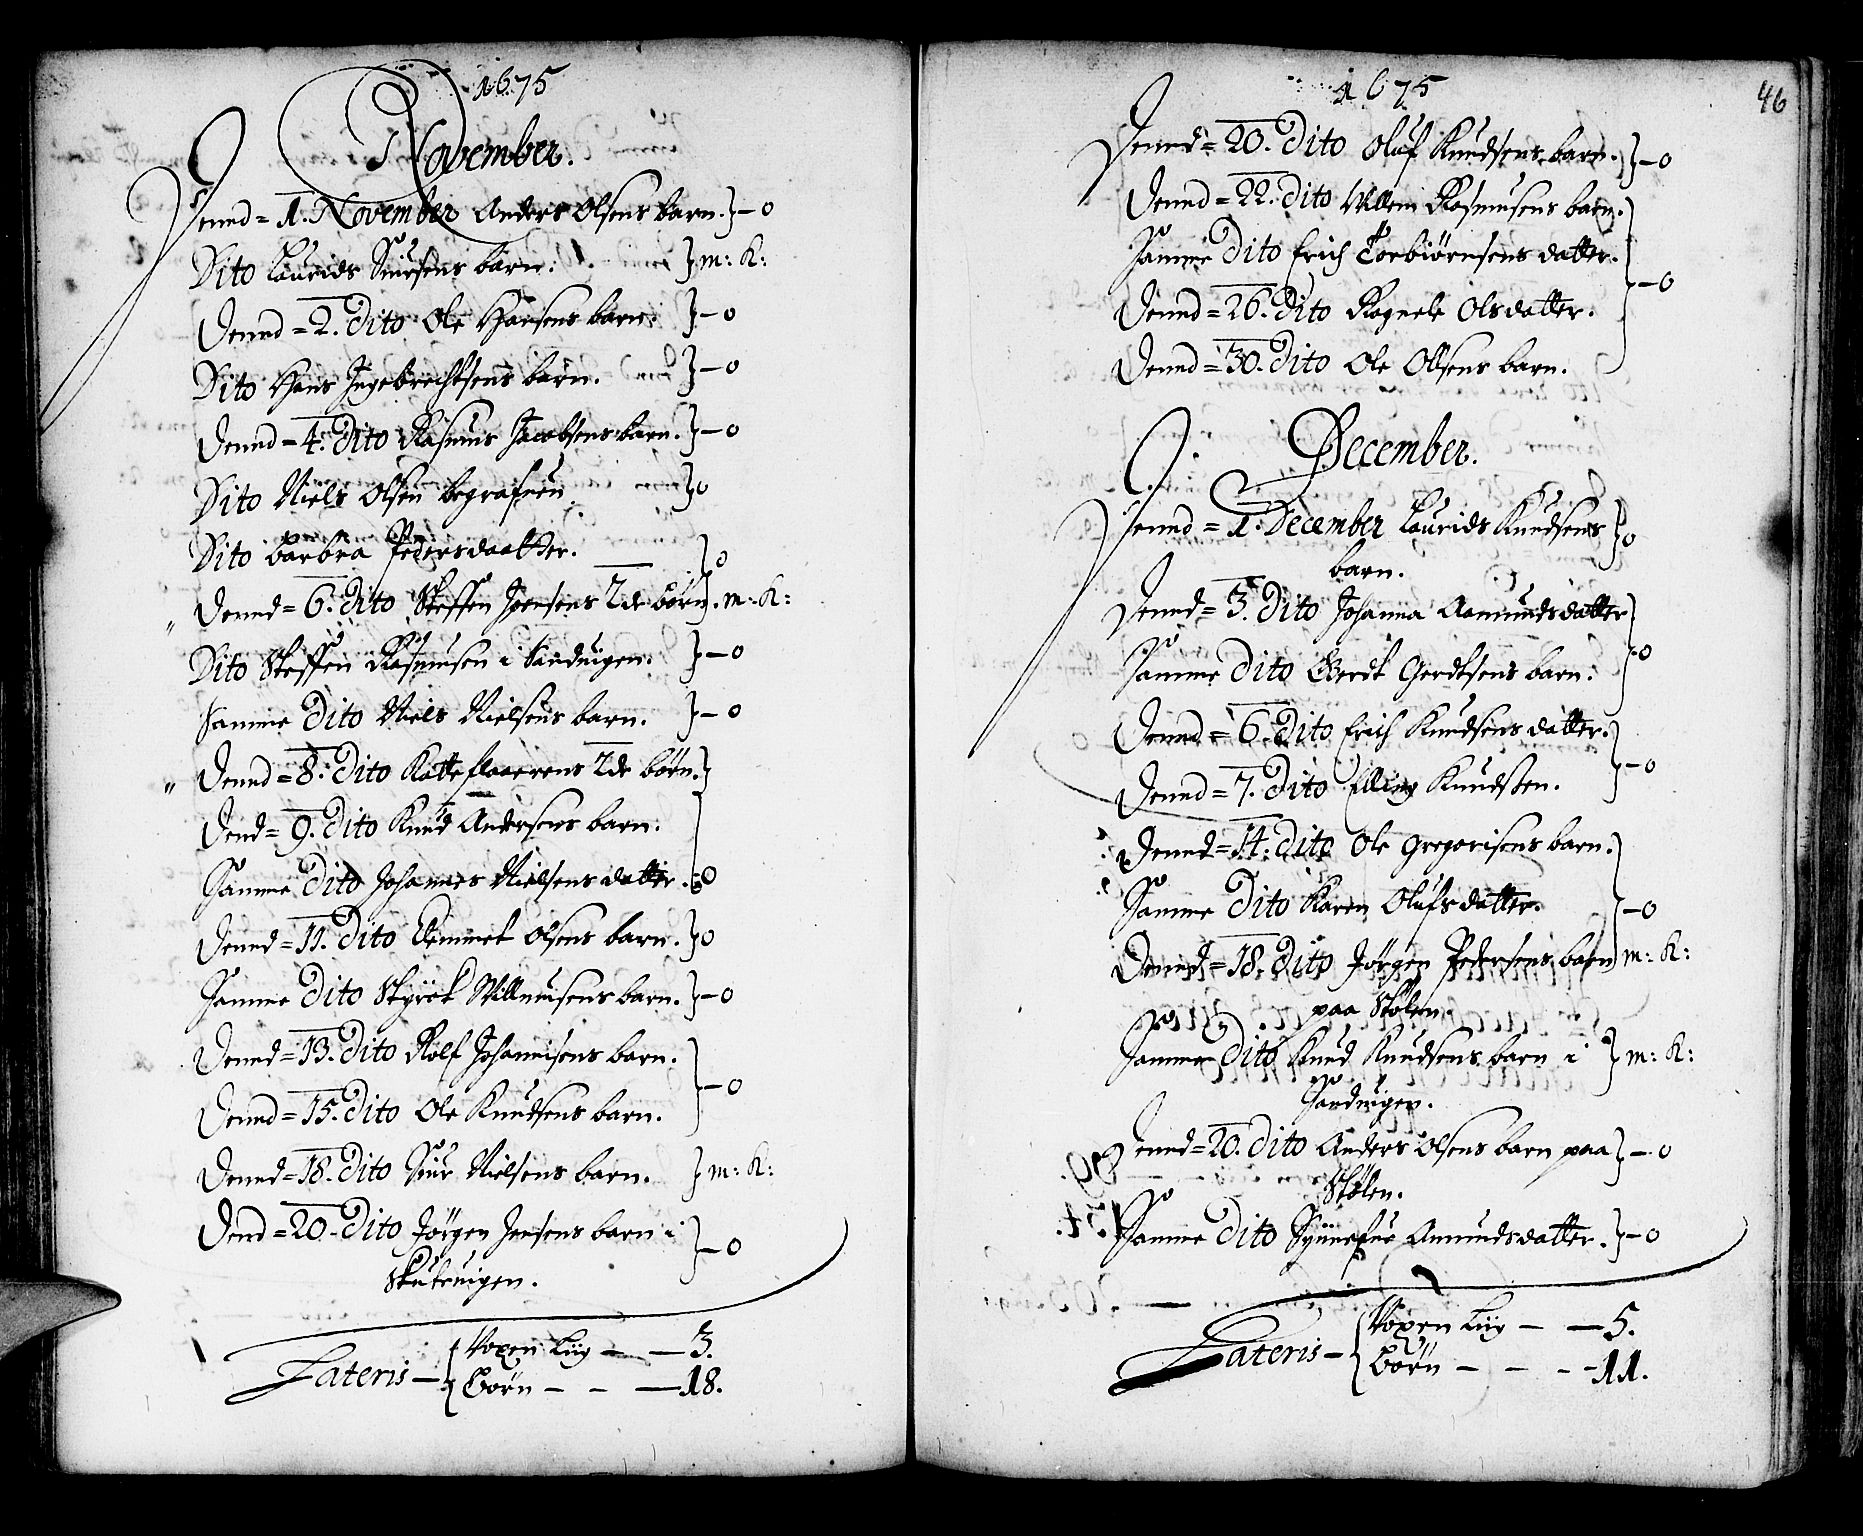 1675
November.
Dennd = 1. November Anders Olsens barn. }-0
Dito Laurids Siursens barn. } m: K:
Dennd = 2. Dito Ole Hansens barn. }-0
Dito Hans Ingebrechtsens barn. }-0
Dennd = 4. Dito Rasmus Jacobsens barn. }-0
Dito Niels Olsen begrafuen }0
Dito barbra Pedersdaatter. }0
" Dennd = 6. Dito Steffen Jensens 2de börn. } m: K:
Dito Steffen Rasmusen i Sanduigen. }-0
Samme Dito Niels Nielsens barn. }-0
" Dennd = 8. Dito Katteflaaerens 2de börn. }
Dend = 9. Dito Knud Andersens barn.
Samme Dito Johannes Nielsens datter. 0
Dennd = 11. Dito Clemmet Olsens barn. }0
Samme Dito Willumsens barn. }-0
Dennd = 13. Dito Rolf Johannisens barn.
Dennd = 15. Dito Ole Knudsens barn. }-0
Dennd = 18. Dito Siur Nielsens barn. } m: K:
Dend = 20. Dito Jörgen Jensens barn i
Skuteuigen. }-0
Lateris - { Voxen Liig - - 3.
Börn - - - 18.
1675
46
Dennd = 20. Dito Oluf Knudsens barn. }-0
Dennd = 22. Dito Willem Rasmusens barn.
Samme Dito Erich Torbiørnsens datter. }-0
Dennd = 26. Dito Ragnele Olsdatter.
Dennd = 30. Dito Ole Olsens barn.
December.
Dennd = 1. December Laurids Knudsens }0
barn.
Dennd = 3. Dito Johanna Aamundsdatter
Samme Dito Gerdt Gerdtsens barn: }-0
Dennd = 6. Dito Erich Knudsens datter.
Dennd = 7. Dito Elling Knudsen. }-0
Dennd = 14. Dito Ole Gregorisens barn.
Samme Dito Karen Olufsdatter. }-0
Dennd = 18. Dito Jörgen Pedersens barn } m: K:
paa Stölen.
Samme Dito Knud Knudsens barn i } m: K:
Sanduigen.
Dennd = 20. Dito Anders Olsens barn paa }-0
Stölen.
Samme Dito Synnefue Amundsdatter. }-0
Lateris - { Voxen Liig - - 5.
Börn - - - 11.